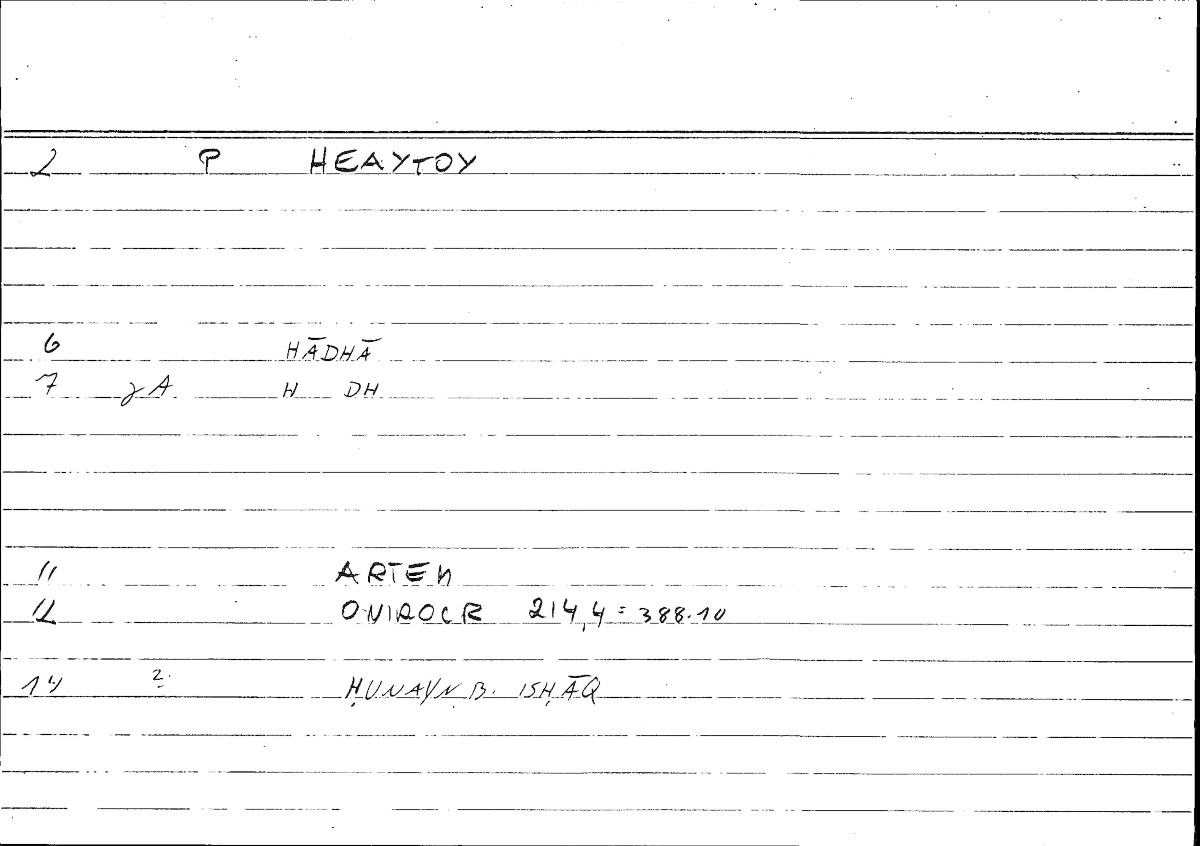 2 P HEAYTOY
6 HĀDHĀ
7 γA H DH
11 ARTEM
12 ONIROCR 214,4 = 388.10
14 2. ḤUNAYN B. ISḤĀQ